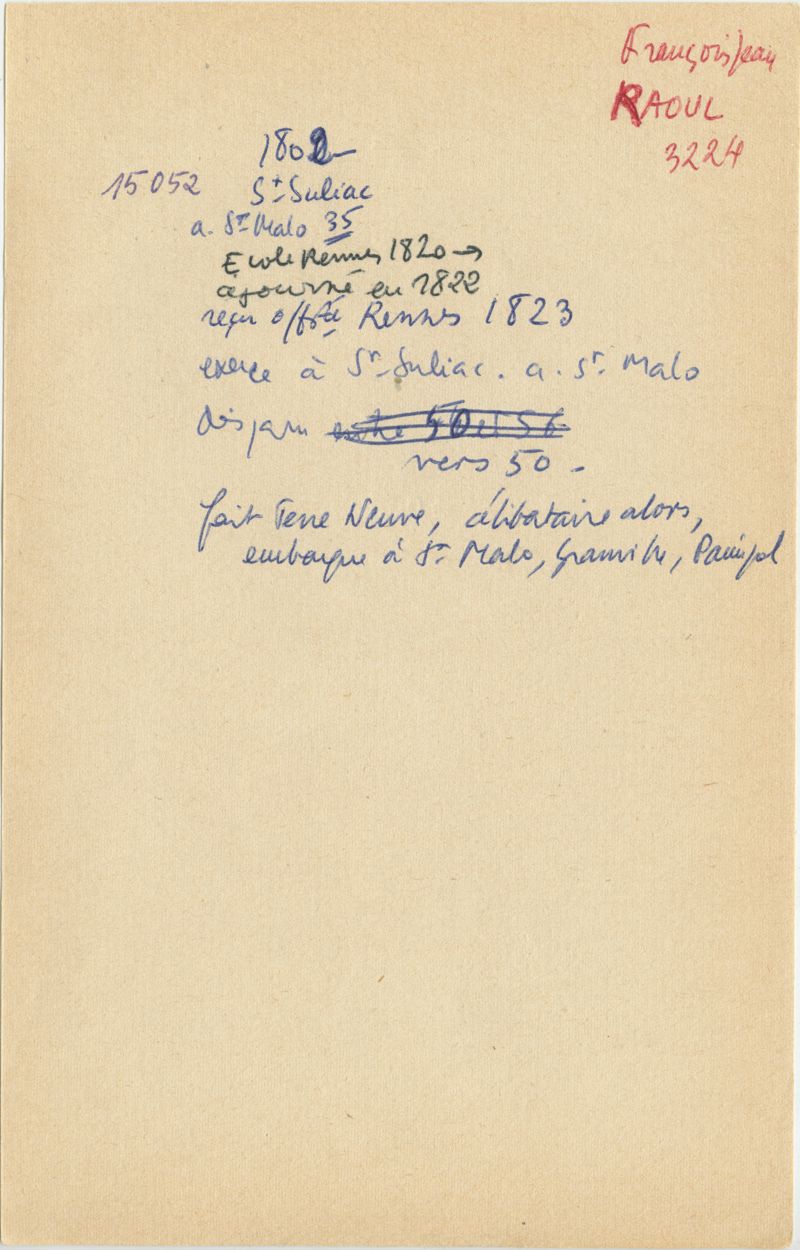 François Jean
RAOUL
3224
1802
15052 St Suliac
a. St Malo 35
Ecole Rennes 1820 →
ajourné en 1822
reçu off Rennes 1823
exerce à St-Suliac. a. St Malo
disparu entre 50 et 56
vers 50 -
fait Terre Neuve, célibataire alors,
embarque à St Malo, Granville, Paimpol